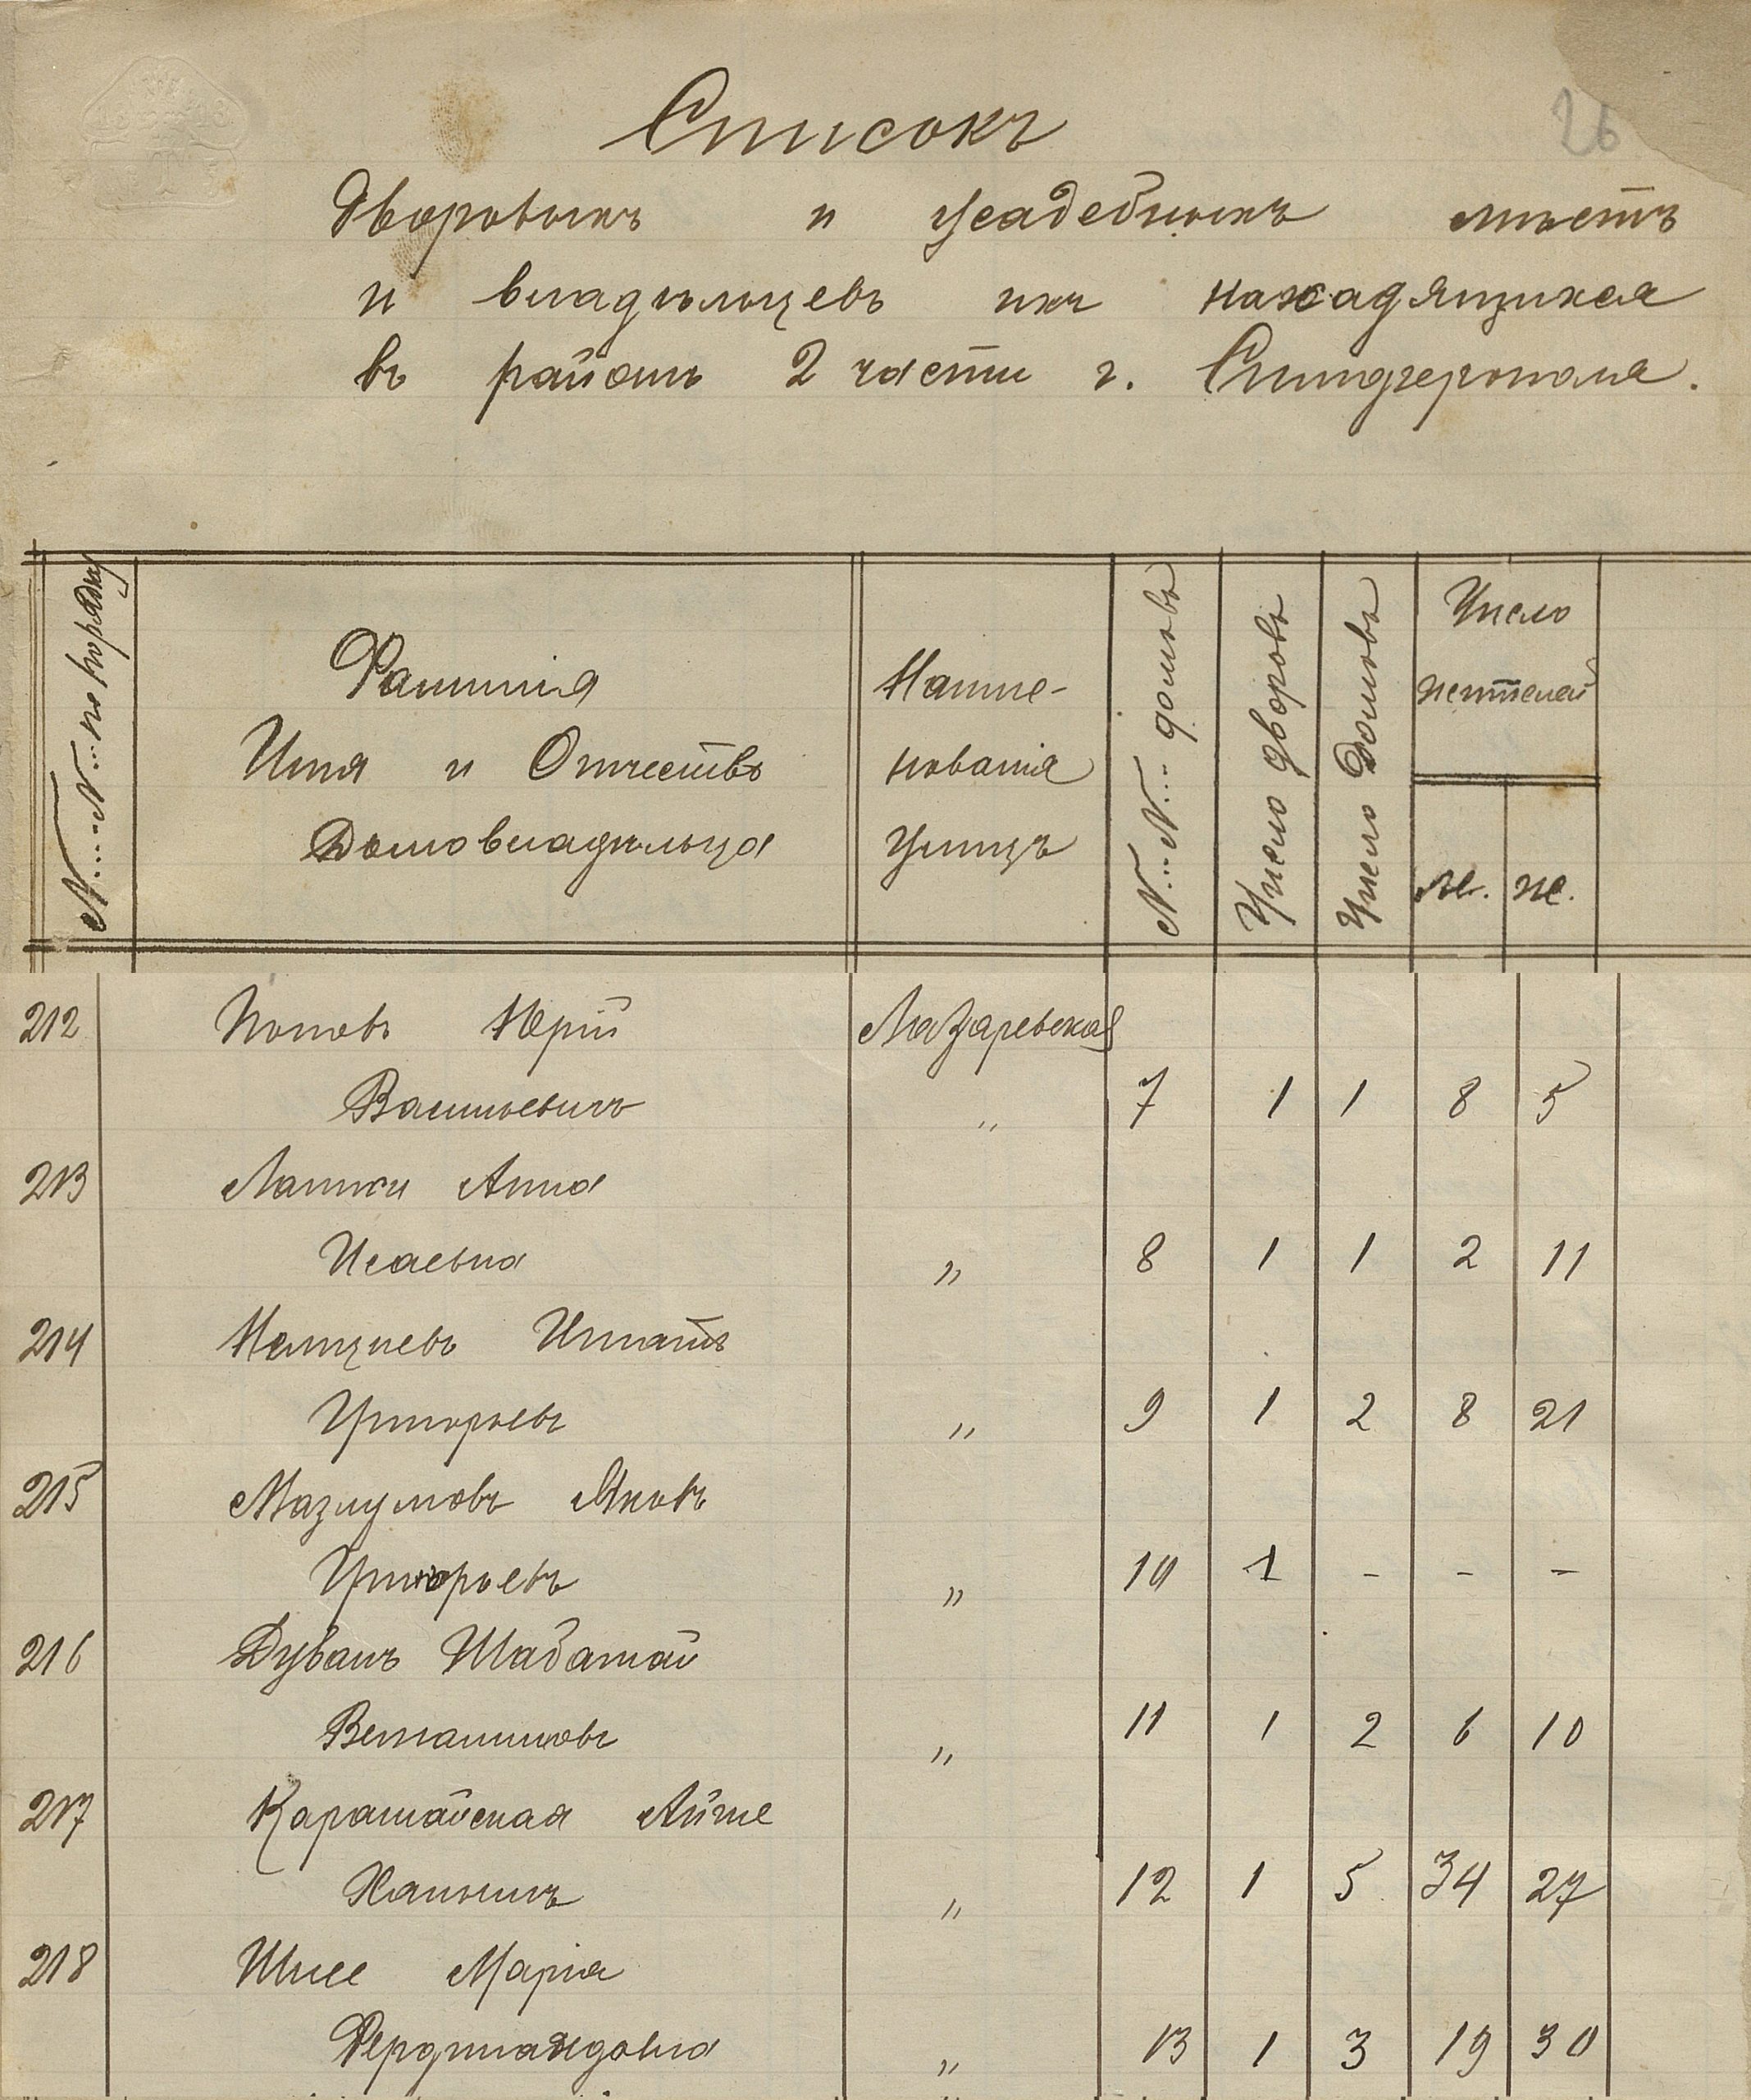 Списокъ
26
Дворовыхъ и усадебныхъ мѣстъ
и владѣльцевъ ихъ находящихся
въ районѣ 2 части г. Симферополя.
№№ по порядку
Фамилія
Имя и Отчество
Домовладѣльца
Наиме-
нованія
Улицъ
№№ домовъ
Число дворовъ
Число Домовъ
Число
жителей
м. ж.
212 Поповъ Юрій Лазаревская
Васильевичъ „ 7 1 1 8 5
213 Анна
Исаевна „ 8 1 1 2 11
214 Игнатъ
Григорьевъ „ 9 1 2 8 21
215 Мазлумовъ Яковъ
Григорьевъ „ 10 1 - - -
216 Дуванъ Шабатай
Веталиновъ „ 11 1 2 6 10
217 Карашайская Айше
Ханымъ „ 12 1 5 34 27
218 Шлее Марія
Фердинандовна „ 13 1 3 19 30